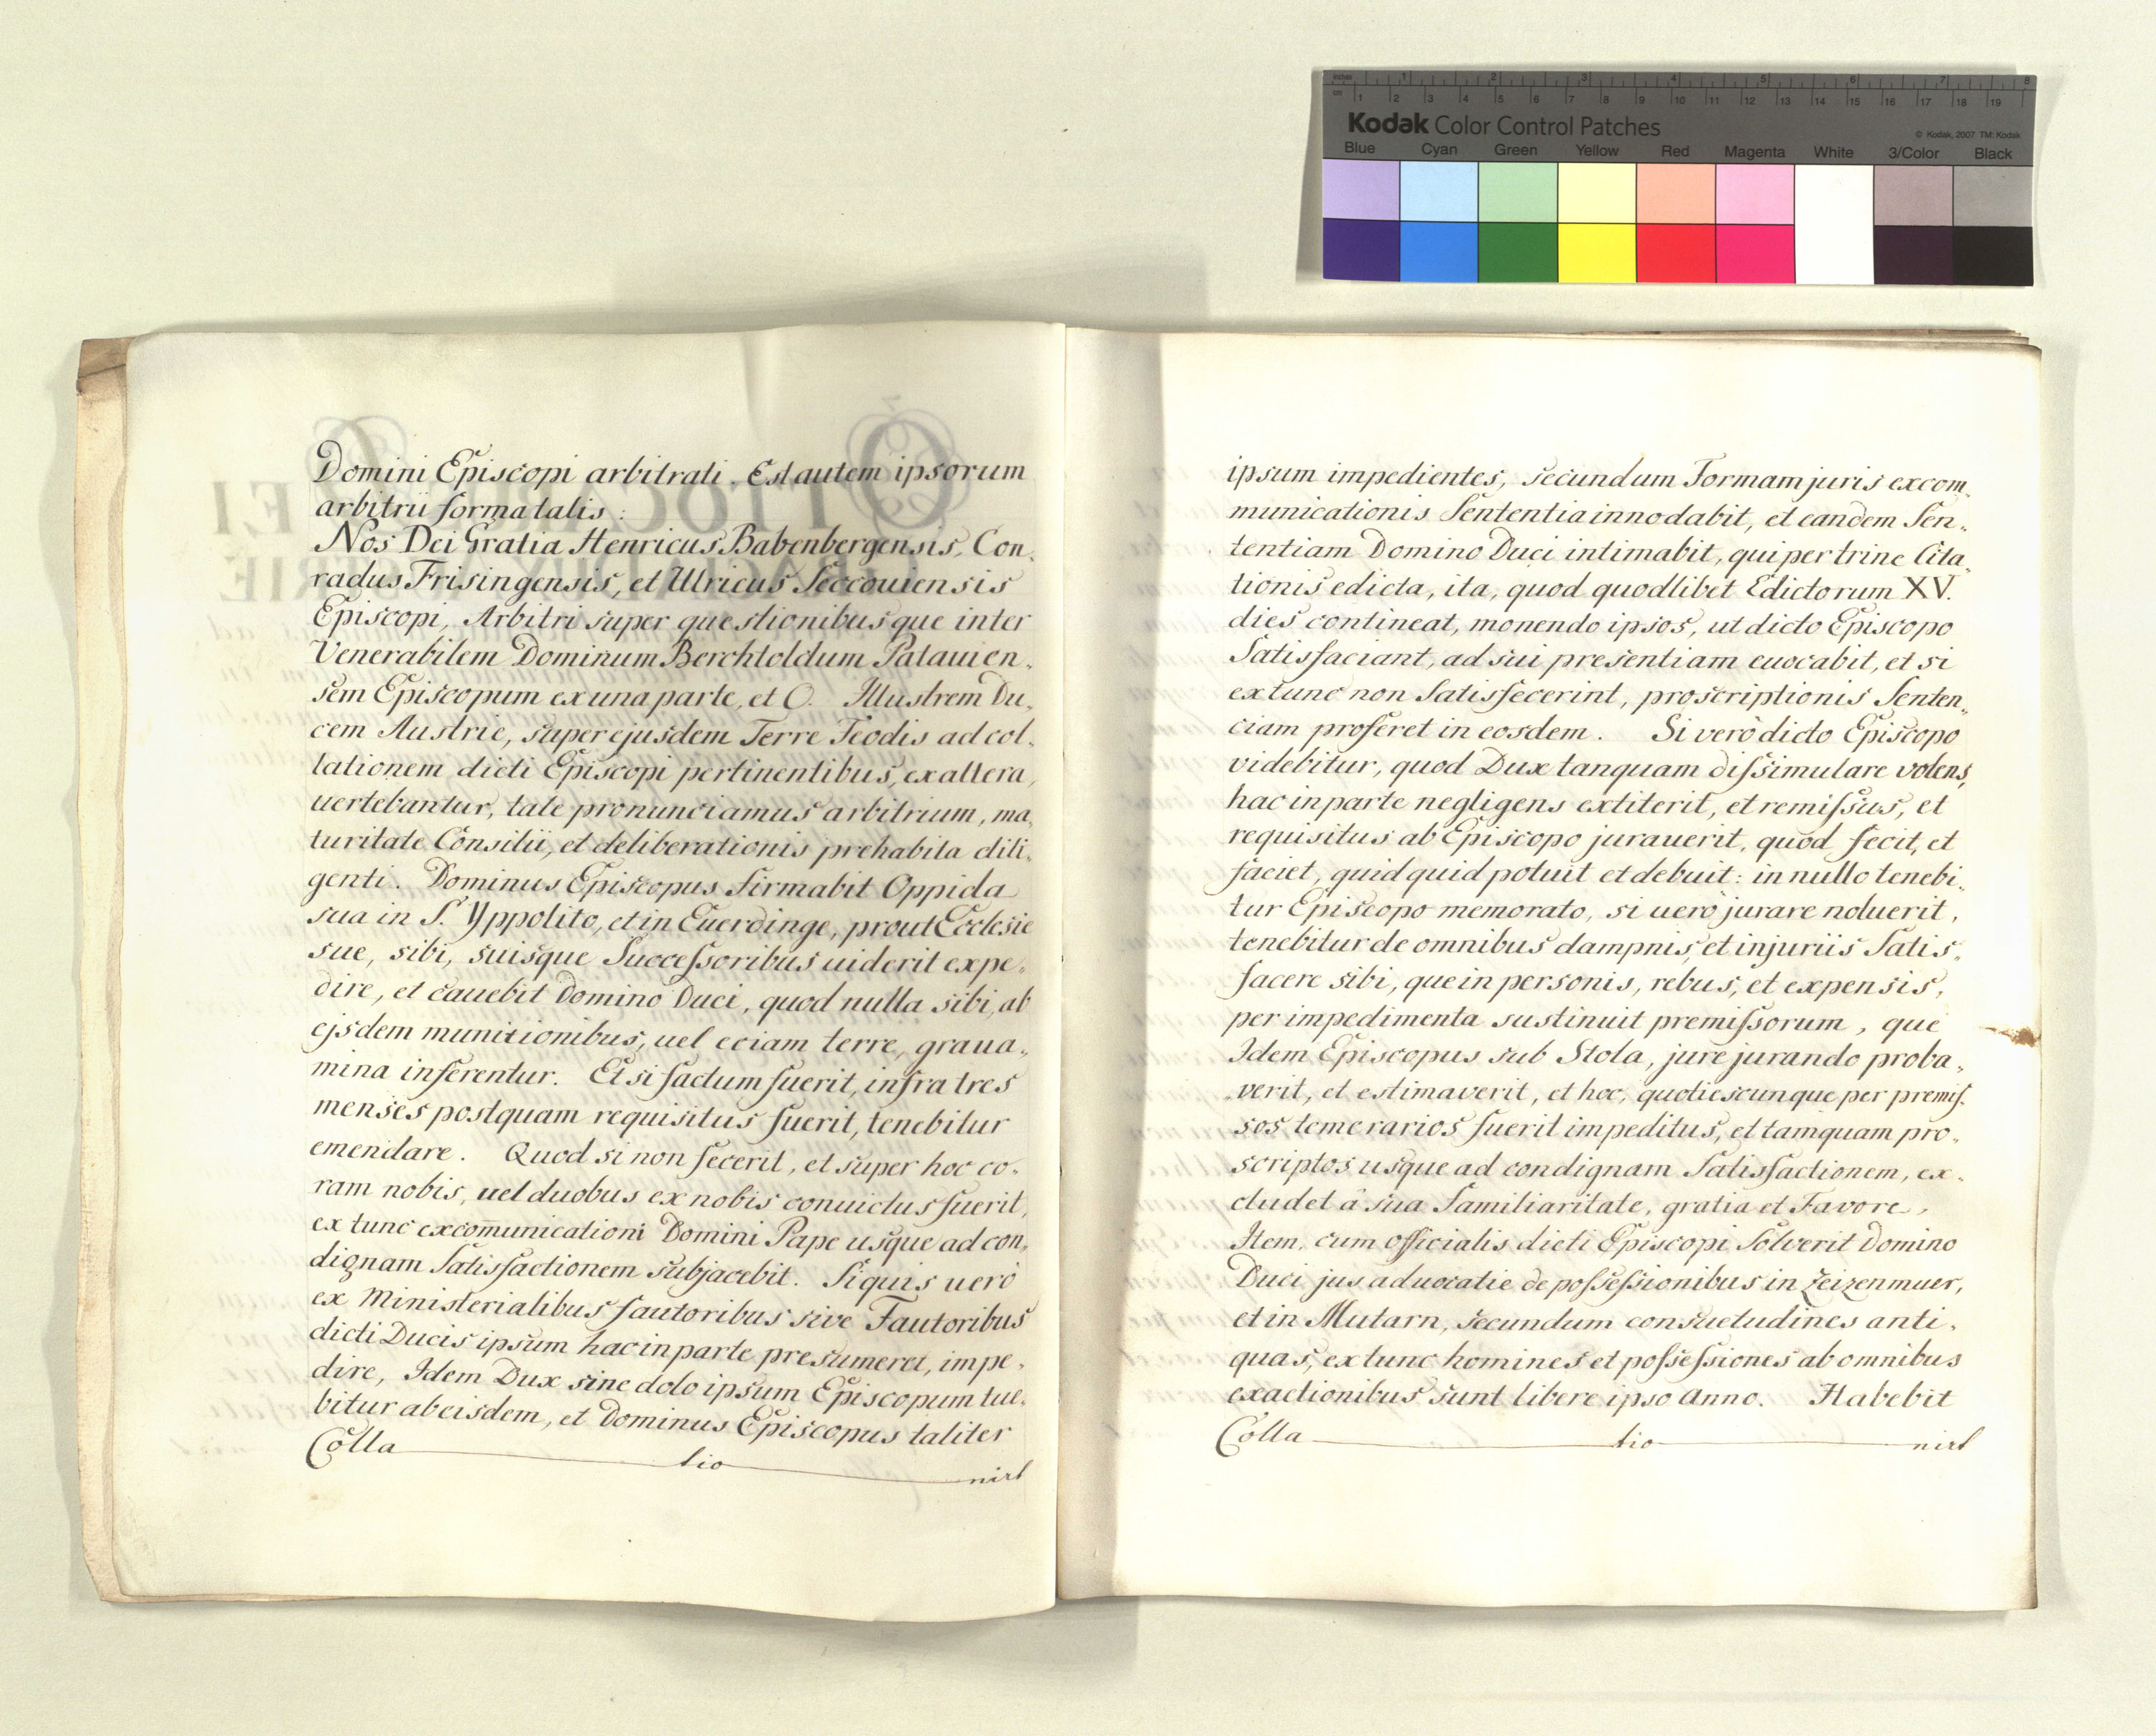 inches 1 2 3 4 5 6 7 8
cm 1 2 3 4 5 6 7 8 9 10 11 12 13 14 15 16 17 18 19
Kodak Color Control Patches
© Kodak, 2007 TM: Kodak
Blue Cyan Green Yellow Red Magenta White 3/Color Black
Domini Episcopi arbitrati. Est autem ipsorum
arbitrii forma talis:
Nos Dei Gratia Henricus Babenbergensis, Con,
radus Frisingensis, et Ulricus Seccouiensis
Episcopi, Arbitri super questionibus que inter
Venerabilem Dominum Berchtoldum Patauien,
sem Episcopum ex una parte, et O. Illustrem Du,
cem Austrie, super ejusdem Terre Feodis ad col,
lationem dicti Episcopi pertinentibus, ex altera,
uertebantur, tale pronunciamus arbitrium, ma,
turitate Consilii, et deliberationis prehabita dili,
genti. Dominus Episcopus firmabit Oppida
sua in S. Yppolito, et in Euerdinge, prout Ecclesie
sue, sibi, suisque Successoribus uiderit expe,
dire, et cauebit Domino Duci, quod nulla sibi, ab
ejsdem munitionibus, uel eciam terre, graua,
mina inferentur. Et si factum fuerit, infra tres
menses postquam requisitus fuerit, tenebitur
emendare. Quod si non fecerit, et super hoc co,
ram nobis, uel duobus ex nobis conuictus fuerit,
ex tunc excom̄unicationi Domini Pape usque ad con,
dignam Satisfactionem subjacebit. Siquis uerò
ex Ministerialibus fautoribus sive Fautoribus
dicti Ducis ipsum hac in parte presumeret, impe,
dire, Idem Dux sine dolo ipsum Episcopum tue,
bitur ab eisdem, et Dominus Episcopus taliter
Colla tio nirt
ipsum impedientes, secundum Formam juris excom,
municationis Sententia innodabit, et eandem Sen,
tentiam Domino Duci intimabit, qui per trine Cita,
tionis edicta, ita, quod quodlibet Edictorum XV.
dies contineat, monendo ipsos, ut dicto Episcopo
Satisfaciant, ad sui presentiam euocabit, et si
extunc non Satisfecerint, proscriptionis Senten,
ciam proferet in eosdem. Si verò dicto Episcopo
videbitur, quod Dux tanquam dissimulare volens,
hac in parte negligens extiterit, et remissus, et
requisitus ab Episcopo jurauerit, quod fecit, et
faciet, quidquid potuit et debuit: in nullo tenebi,
tur Episcopo memorato, si uero jurare noluerit,
tenebitur de omnibus dampnis, et injuriis Satis,
facere sibi, que in personis, rebus, et expensis,
per impedimenta sustinuit premissorum, que
Idem Episcopus sub Stola, jure jurando proba,
verit, et estimaverit, et hoc, quotiescunque per premis,
sos temerarios fuerit impeditus, et tamquam pro,
scriptos usque ad condignam Satisfactionem, ex,
cludet à sua Familiaritate, gratia et Favore,
Item, cum officialis dicti Episcopi Solverit Domino
Duci jus aduocatie de possessionibus in Zeizenmuer,
et in Mutarn, secundum consuetudines anti,
quas, extunc homines et possessiones ab omnibus
exactionibus sunt libere ipso anno. Habebit
Colla tio nirt